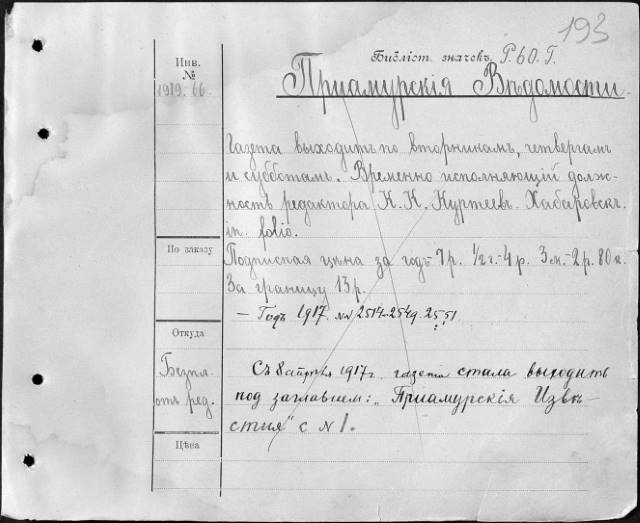 193
Библіот. значекъ Р. 60. Г.
Инв.
№
1919. 66.
Приамурскія Вѣдомости.
Газета выходитъ по вторникамъ, четвергам
и субботам. Временно исполняющій долж-
ность редактора К. К. Куртеевъ. Хабаровскъ.
in folio.
По заказу
Подписная цѣна за годъ-7р. 1/2 г.-4 р. 3 м.-2 р. 80 к.
За границу 13 р.
— Годъ 1917. №№ 2514-2549. 2551
Откуда
Безпл.
отъ ред.
Съ 8 апрѣля 1917 г. газета стала выходить
под заглавием: „Приамурскія Извѣ-
стія" с № 1.
Цѣна